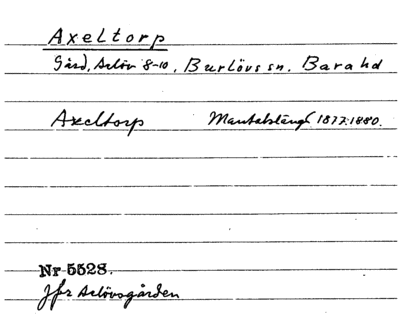 Axeltorp
Gård, Arlöv 8-10, Burlövs sn. Bara hd
Axeltorp Mantalslängd 1877.1880.
Nr 5528.
Jfr Arlövsgården